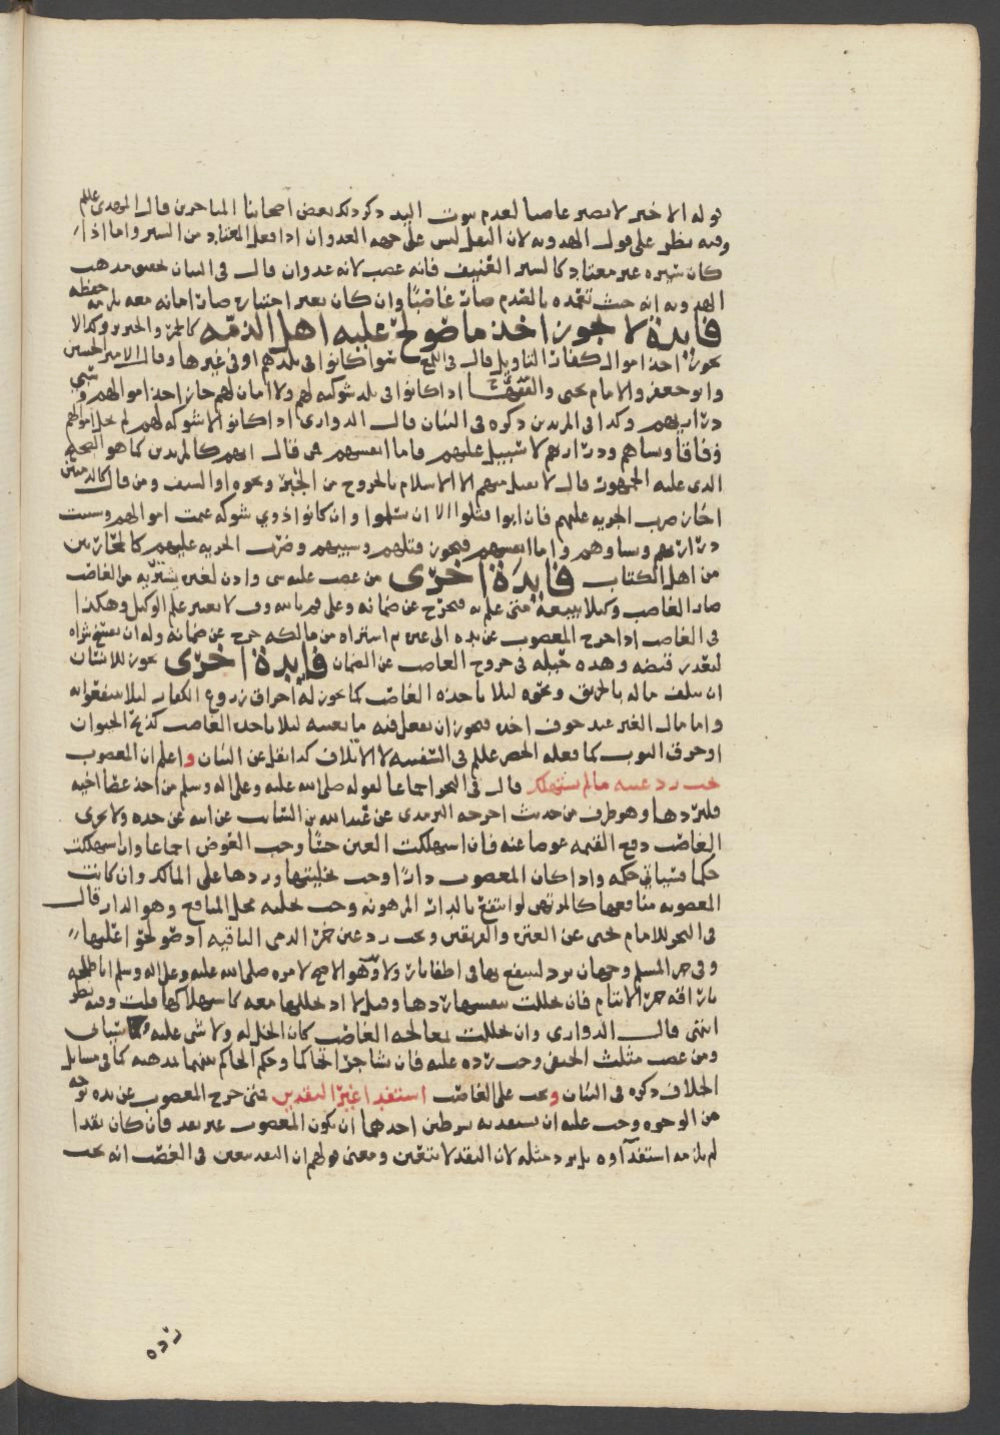 قوله الاخير لا يصير غاصبا لعدم ثبوت اليد ذكر ذلك بعض اصحابنا المتاخرين قال المهدي عليلم
وفيه نظر على قول الهدويه لان النقل ليس على جهه العدوان اذا فعل المعتاد من السير واما اذا
كان سيره غير معتاد كالسير العنيف فانه غصب لانه عدوان قال في البيان تحقيق مذهب
الهدويه انه حيث تعمده بالقدم صار غاضبا وان كان بغير اختياره صار امانه معه يلزمه حفظه
فايدة لا يجوز اخذ ما صولح عليه اهل الذمه كالخمر والخنزير وكذا لا
يجوز اخذ اموال كفار التاويل قال في اللمع سوا كانوا في بلدهم او في غيرها وقال الامير الحسين
وابو جعفر والامام يحيى والفقها اذا كانوا في بلد شوكته لهم ولا امان لهم جاز اخذ اموالهم وسبي
ذراريهم وكذا في المرتدين ذكره في البيان قال الدواري اذا كانوا لا شوكه لهم لم تحل اموالهم
وفاقا ونساهم وذراريهم لا سبيل عليهم فاما انفسهم فمن قال انهم كالمرتدين كما هو الصحيح
الذي عليه الجمهور قال لا يقبل منهم الا الاسلام بالخروج من الجبر ونحوه او السيف ومن قال كالذميين
اجاز ضرب الجزيه عليهم فان ابوا قتلوا الا ان يسلموا وان كانوا ذوي شوكه غنمت اموالهم وسبيت
ذراريهم ونساوهم واما انفسهم فيجوز قتلهم وسبيهم وضرب الجزيه عليهم كالمحاربين
من اهل الكتاب فايدة اخرى من غصب عليه شي واذن لغيره يشتريه من الغاصب
صار الغاصب وكيلا ببيعه متى علم به فيخرج عن ضمانه وعلى قول لا يعتبر علم الوكيل وهكذا
في الغاصب اذا خرج المغصوب عن يده الى غيره ثم اشتراه من مالكه خرج عن ضمانه وله ان يفسخ شراه
لتعذر قبضه وهذه حيله في خروج الغاصب عن الضمان فايدة اخرى يجوز للانسان
ان يتلف ماله بالحريق ونحوه ليلا ياخذه الغاصب كما يجوز له احراق زروع الكفار ليلا ينتفعوا به
واما مال الغير عند خوف اخذه فيجوز ان يفعل فيه ما يعيبه ليلا ياخذه الغاصب كذبح الحيوان
او خرق الثوب كما فعله الخضر عليلم في السفينه لا الاتلاف كذا نقل عن البيان واعلم ان المغصوب
يجب رد عينه ما لم يستهلك قال في البحر اجماعا لقوله صلى الله عليه وعلى اله وسلم من اخذ عصا اخيه
فليردها وهو طرف من حديث اخرجه الترمذي عن عبد الله بن السايب عن ابيه عن جده ولا يجزي
الغاصب دفع القيمه عوضا عنه فان استهلكت العين حسا وجب العوض اجماعا وان استهلكت
حكما فسياتي حكمه واذا كان المغصوب دارا وجب تخليتها وردها على المالك وان كانت
المغصوبه منافعها كالمرتهن لو انتفع بالدار المرهونه وجب عليه تحمل المنافع وهو الدار قال
في البحر للامام يحيى عن العتره والفريقين ويجب رد عين خمر الذمي الباقيه اذ صولحوا عليها
وفي خمر المسلم وجهان يرد لينتفع بها في اطفا نار ولا وهو الاصح لامره صلى الله عليه وعلى اله وسلم ابا طلحه
باراقه خمر الايتام فان خللت بنفسها ردها وقيل لا اذ تخللها معه كاستهلاكها قلت وفيه نظر
انتهى قال الدواري وان خللت بمعالجه الغاصب كان الخل له ولا شي عليه كما سياتي
ومن غصب مثلث الحنفي وجب رده عليه فان تشاجرا تحاكما وحكم الحاكم بينهما بمذهبه كما في مسايل
الخلاف ذكره في البيان ويجب على الغاصب استفدا غير النقدين فمتى خرج المغصوب عن يده بوجه
من الوجوه وجب عليه ان يستفديه بشرطين احدهما ان يكون المغصوب غير نقد فان كان نقدا
لم يلزمه استفداوه بل يرد مثله لان النقد لا يتعين ومعنى قولهم ان النقد يتعين في الغصب انه يجب
رده